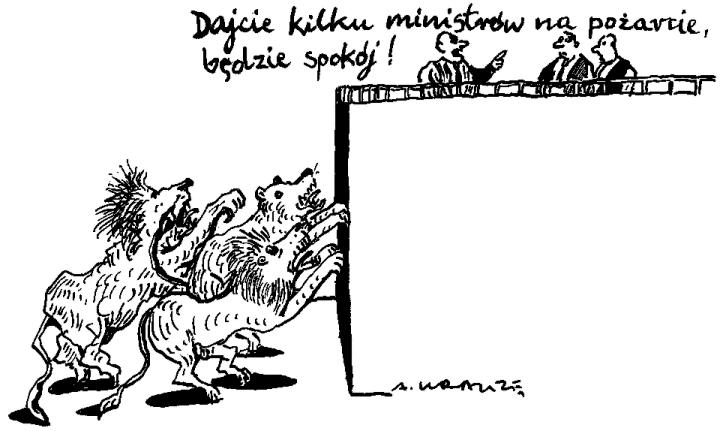 Dajcie kilku ministrów na pożarcie,
będzie spokój!
A. KRAUZE